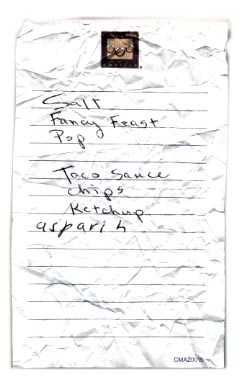 Salt
Fancy Feast
Pop
Taco Sauce
chips
Ketchup
asparih
CMAZ0015